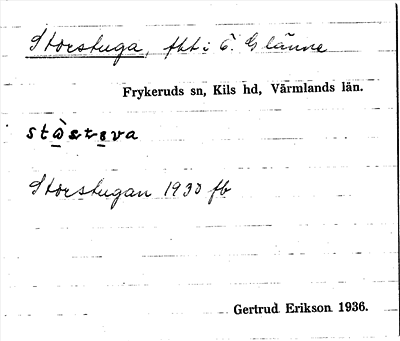 Storstuga, fht i Ö. Glänne
Frykeruds sn, Kils hd, Värmlands län.
Storstugan 1930 fb
Gertrud Erikson 1936.